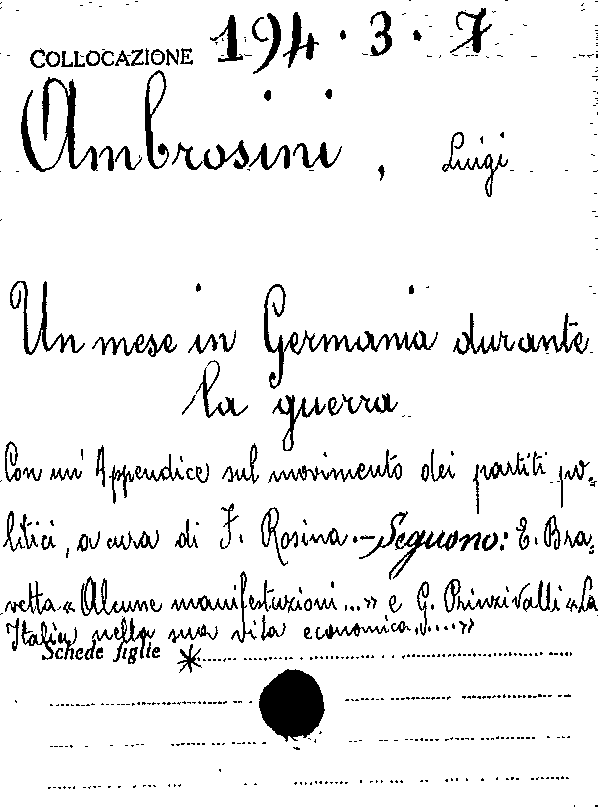 COLLOCAZIONE 194.3.7
Ambrosini, Luigi
Un mese in Germania durante
la guerra
Con un' Appendice sul movimento dei partiti po-
litici, a cura di F. Rosina.- Seguono: E. Bra-
vetta «Alcune manifestazioni...» e G. Prinzivalli «La
Italia nella sua vita economica.....»
Schede figlie *